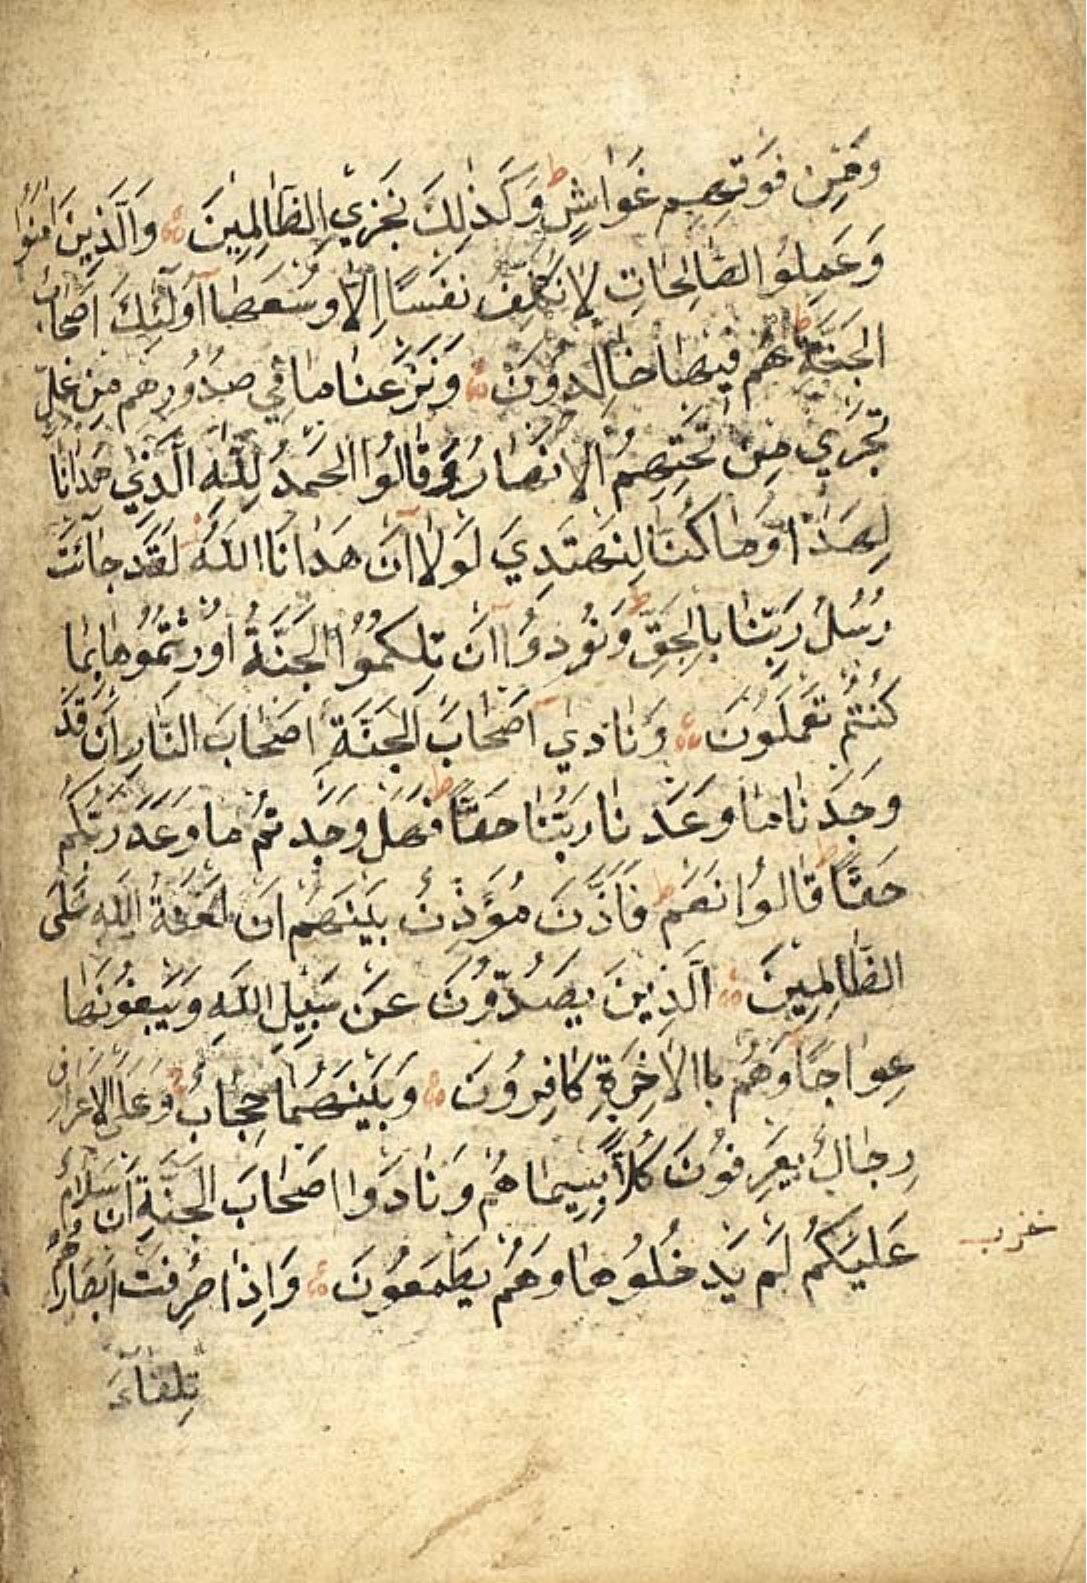 وَمِن فَوقِهِم غَوَاشٍ ط وَكَذٰلِكَ نَجزِي الظَّالِمِينَ وَالَّذِينَ اٰمَنُوا
وَعَمِلُوا الصَّالِحَاتِ لَا نُكَلِّفُ نَفسًا اِلَّا وُسعَهَا اُولٰئِكَ اَصحَابُ
الجَنَّةِ ط هُم فِيهَا خَالِدُونَ وَنَزَعنَا مَا فِي صُدُورِهِم مِن غِلٍّ
تَجرِي مِن تَحتِهِمُ الاَنهَارُ وَقَالُوا الحَمدُ لِلّٰهِ الَّذِي هَدَانَا
لِهٰذَا وَمَا كُنَّا لِنَهتَدِيَ لَولَا اَن هَدَانَا اللّٰهُ لَقَد جَائَت
رُسُلُ رَبِّنَا بِالحَقِّ ط وَنُودُوا اَن تِلكُمُوا الجَنَّةُ اُورِثتُمُوهَا بِمَا
كُنتُم تَعمَلُونَ وَنَادٰي اَصحَابُ الجَنَّةِ اَصحَابَ النَّارِ اَن قَد
وَجَدنَا مَا وَعَدَنَا رَبُّنَا حَقًّا ط فَهَل وَجَدتُم مَا وَعَدَ رَبُّكُم
حَقًّا ط قَالُوا نَعَم ط فَاَذَّنَ مُؤَذِّنٌ بَينَهُم اَن لَعنَةُ اللّٰهِ عَلَى
الظَّالِمِينَ اَلَّذِينَ يَصُدُّونَ عَن سَبِيلِ اللّٰهِ وَيَبغُونَهَا
عِوَاجًا وَهُم بِاالاٰخِرَةِ كَافِرُونَ وَبَينَهُمَا حِجَابٌ وَعَلَى الاَعرَافِ
رِجَالٌ يَعرِفُونَ كُلًّا بِسِيمَاهُم وَنَادَوا اَصحَابَ الجَنَّةِ اَن سَلَامٌ
عَلَيكُم لَم يَدخُلُوهَا وَهُم يَطمَعُونَ وَاِذَا صُرِفَت اَبصَارُهُم
تِلقَاءَ